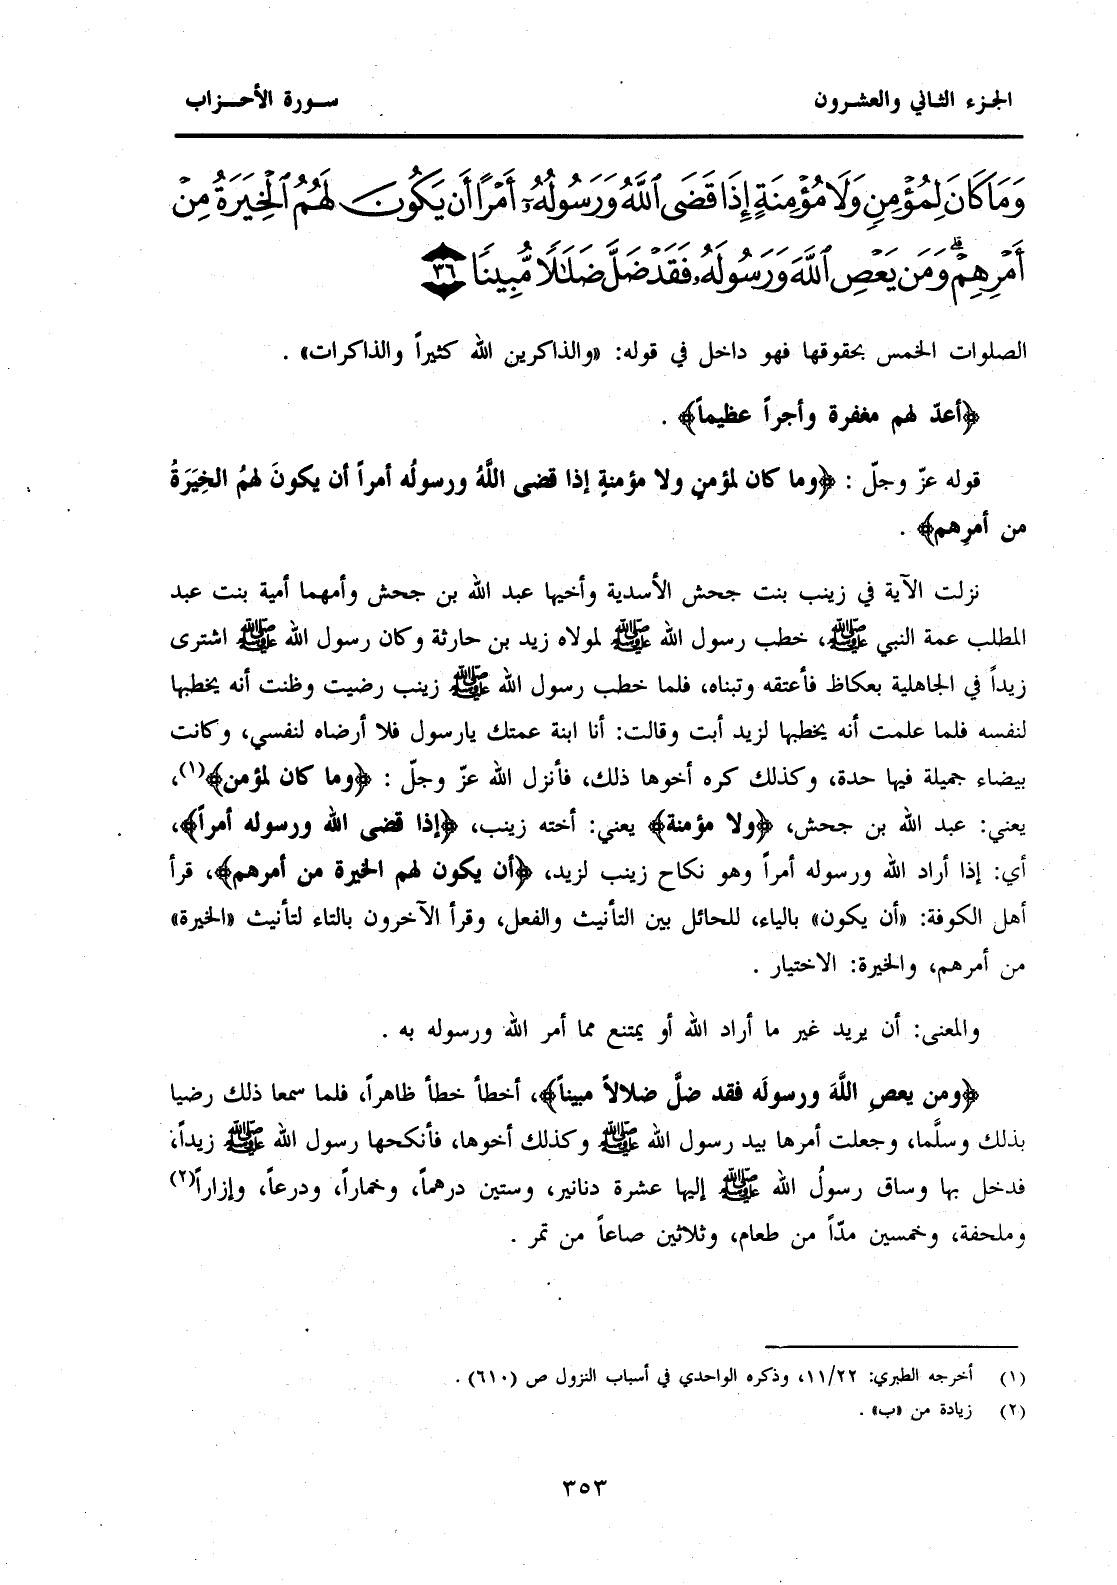 الجزء الثاني والعشرون
سورة الأحزاب
وَمَا كَانَ لِمُؤْمِنٍ وَلَا مُؤْمِنَةٍ إِذَا قَضَى ٱللَّهُ وَرَسُولُهُۥٓ أَمْرًا أَن يَكُونَ لَهُمُ ٱلْخِيَرَةُ مِنْ
أَمْرِهِمْ ۗ وَمَن يَعْصِ ٱللَّهَ وَرَسُولَهُۥ فَقَدْ ضَلَّ ضَلَٰلًا مُّبِينًا ٣٦
الصلوات الخمس بحقوقها فهو داخل في قوله: «والذاكرين الله كثيراً والذاكرات» .
﴿أعدّ لهم مغفرة وأجراً عظيماً﴾ .
قوله عزّ وجلّ : ﴿وما كان لمؤمنٍ ولا مؤمنةٍ إذا قضى اللَّهُ ورسولُه أمراً أن يكونَ لهمُ الخِيَرَةُ
من أمرِهم﴾ .
نزلت الآية في زينب بنت جحش الأسدية وأخيها عبد الله بن جحش وأمهما أمية بنت عبد
المطلب عمة النبي ﷺ، خطب رسول الله ﷺ لمولاه زيد بن حارثة وكان رسول الله ﷺ اشترى
زيداً في الجاهلية بعكاظ فأعتقه وتبناه، فلما خطب رسول الله ﷺ زينب رضيت وظنت أنه يخطبها
لنفسه فلما علمت أنه يخطبها لزيد أبت وقالت: أنا ابنة عمتك يارسول فلا أرضاه لنفسي، وكانت
بيضاء جميلة فيها حدة، وكذلك كره أخوها ذلك، فأنزل الله عزّ وجلّ : ﴿وما كان لمؤمن﴾(١)،
يعني: عبد الله بن جحش، ﴿ولا مؤمنة﴾ يعني: أخته زينب، ﴿إذا قضى الله ورسوله أمراً﴾،
أي: إذا أراد الله ورسوله أمراً وهو نكاح زينب لزيد، ﴿أن يكون لهم الخيرة من أمرهم﴾، قرأ
أهل الكوفة: «أن يكون» بالياء، للحائل بين التأنيث والفعل، وقرأ الآخرون بالتاء لتأنيث «الخيرة»
من أمرهم، والخيرة: الاختيار .
والمعنى: أن يريد غير ما أراد الله أو يمتنع مما أمر الله ورسوله به .
﴿ومن يعصِ اللَّهَ ورسولَه فقد ضلَّ ضلالاً مبيناً﴾، أخطأ خطأ ظاهراً، فلما سمعا ذلك رضيا
بذلك وسلَّما، وجعلت أمرها بيد رسول الله ﷺ وكذلك أخوها، فأنكحها رسول الله ﷺ زيداً،
فدخل بها وساق رسولُ الله ﷺ إليها عشرة دنانير، وستين درهماً، وخماراً، ودرعاً، وإزاراً(٢)
وملحفة، وخمسين مدّاً من طعام، وثلاثين صاعاً من تمر .
(١) أخرجه الطبري: ١١/٢٢، وذكره الواحدي في أسباب النزول ص (٦١٠) .
(٢) زيادة من «ب» .
٣٥٣